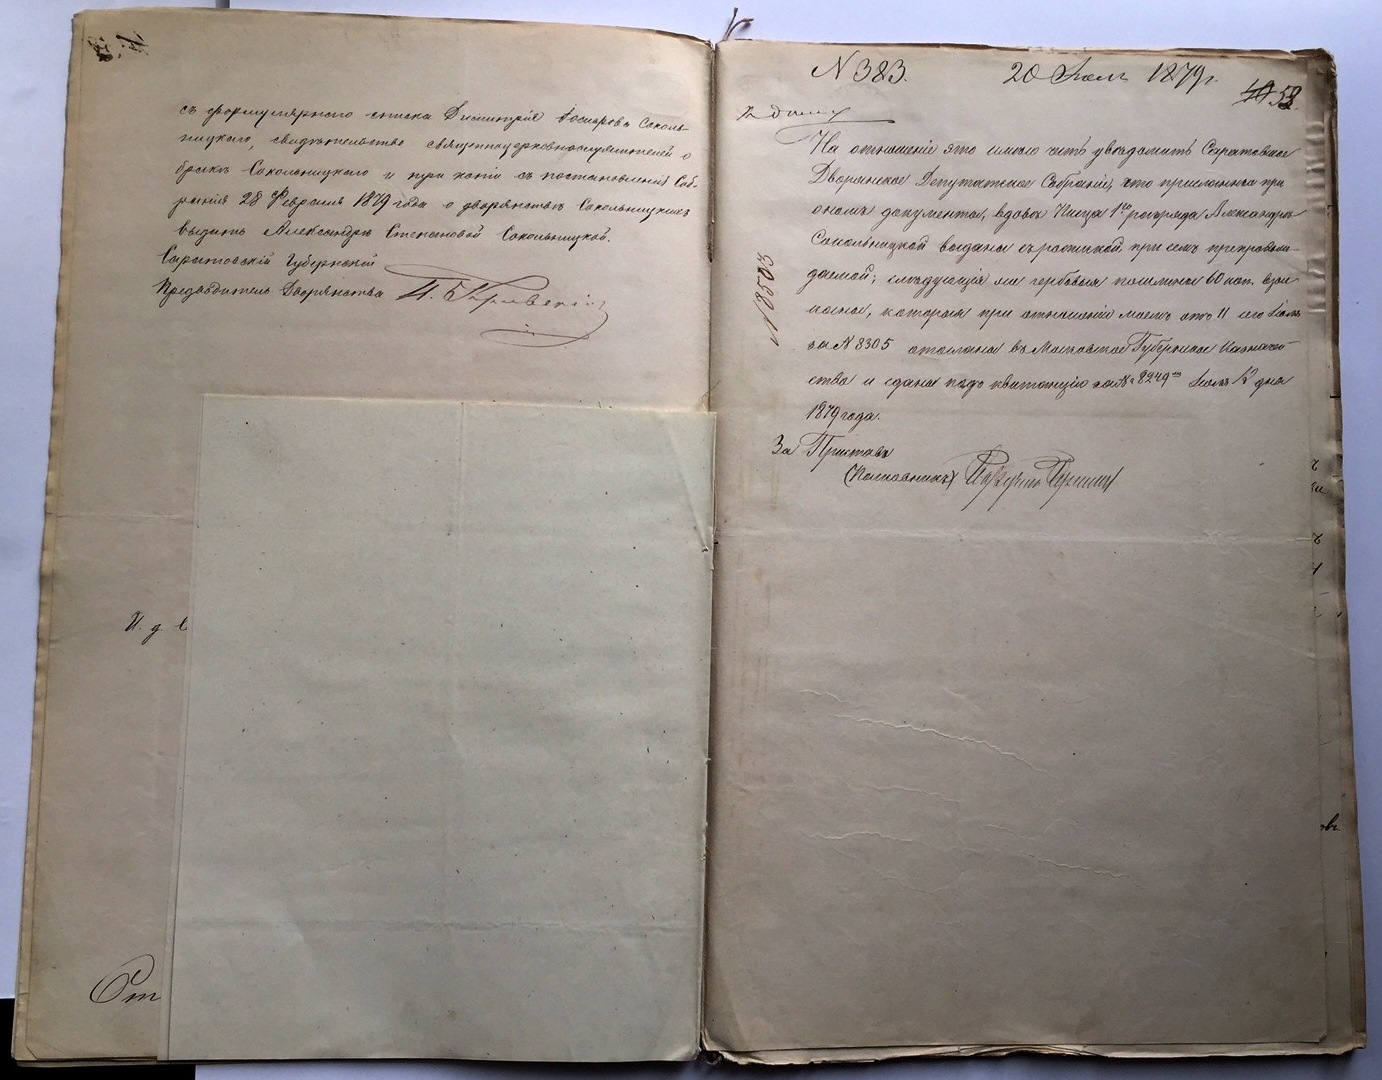 съ формулярнаго списка Димитрія Соколь-
ницкаго, свидѣтельство священноцерковнослужителей о
бракѣ Сокольницкаго и три копіи съ постановленія Соб-
ранія 28 Февраля 1879 года о дворянствѣ Сокольницкихъ
выдать Александрѣ Степановой Сокольницкой.
Саратовскій Губернскій
Предводитель Дворянства
И. д. С
От
N 383. 20 Іюля 1879 г.
49 58
къ дѣлу
На отношеніе это имѣю честь увѣдомить Саратовское
Дворянское Депутатское Собраніе, что присланные при
ономъ документы, вдовѣ Писца 1го разряда Александрѣ
Сокольницкой выданы съ роспиской при семъ препровож-
даемой; слѣдующія же гербовыя пошлины 60 коп. взы-
сканы, которыя при отношеніи моемъ отъ 11 сего Іюля
за N 8305 отосланы въ Московское Губернское Казначей-
ство и сданы подъ квитанцію за N 8249 Іюля 12 дня
1879 года.
За Пристава
N 18503